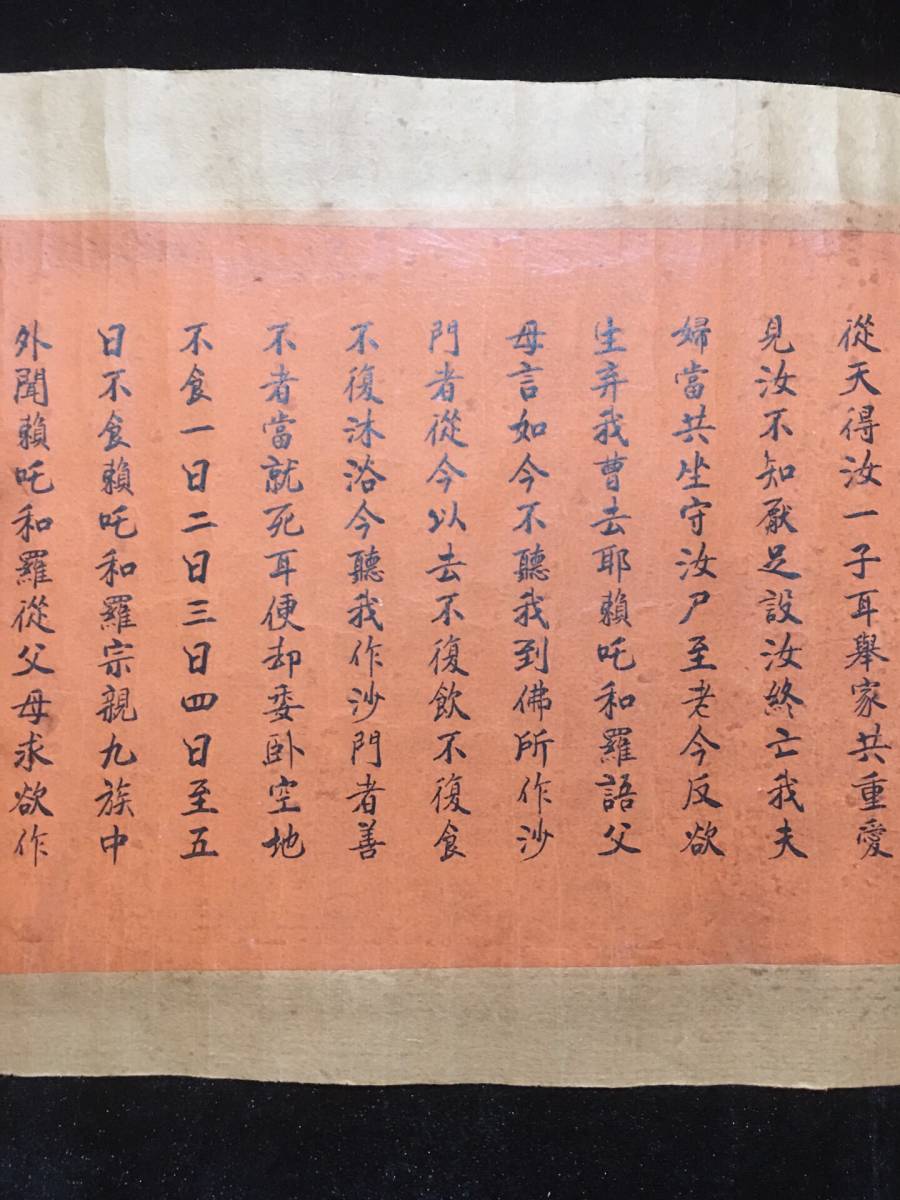 從天得汝一子耳舉家共重愛
見汝不知厭足設汝終亡我夫
婦當共坐守汝尸至老今反欲
生弃我曹去耶賴吒和羅語父
母言如今不聽我到佛所作沙
門者從今以去不復飲不復食
不復沐浴今聽我作沙門者善
不者當就死耳便却委卧空地
不食一日二日三日四日至五
日不食賴吒和羅宗親九族中
外聞賴吒和羅從父母求欲作